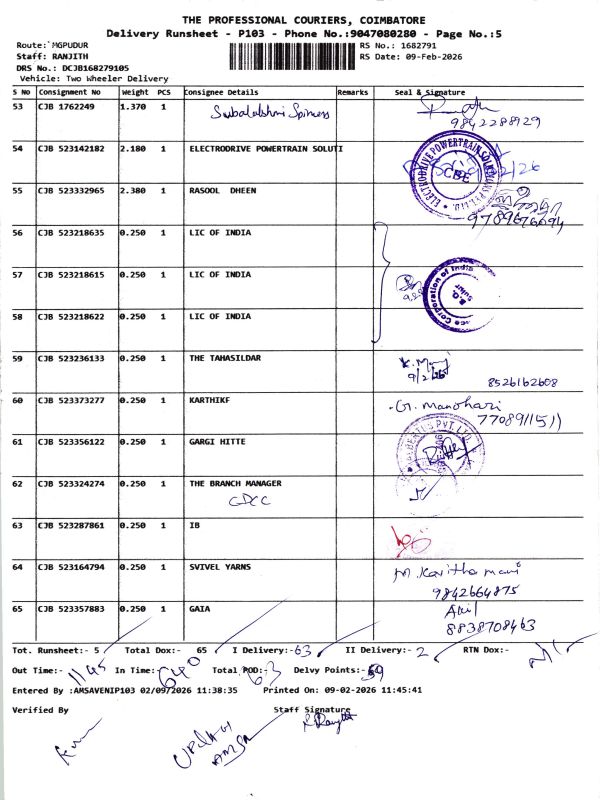 THE PROFESSIONAL COURIERS, COIMBATORE
Delivery Runsheet - P103 - Phone No.:9047080280 - Page No.:5
Route:`MGPUDUR RS No.: 1682791
Staff: RANJITH RS Date: 09-Feb-2026
DRS No.: DCJB168279105
Vehicle: Two Wheeler Delivery
S No Consignment No Weight PCS Consignee Details Remarks Seal & Signature
53 CJB 1762249 1.370 1
9842288929
54 CJB 523142182 2.180 1 ELECTRODRIVE POWERTRAIN SOLUTI
ELECTRODRIVE POWERTRAIN SOLUTIONS PVT.LTD. CBE
55 CJB 523332965 2.380 1 RASOOL DHEEN
9789676694
56 CJB 523218635 0.250 1 LIC OF INDIA
57 CJB 523218615 0.250 1 LIC OF INDIA
Corporation of India
58 CJB 523218622 0.250 1 LIC OF INDIA
59 CJB 523236133 0.250 1 THE TAHASILDAR
9/2/26 8526162608
60 CJB 523373277 0.250 1 KARTHIKF G. Manohari
7708911511
61 CJB 523356122 0.250 1 GARGI HITTE
PVT. LTD.
62 CJB 523324274 0.250 1 THE BRANCH MANAGER
CDCC
63 CJB 523287861 0.250 1 IB
64 CJB 523164794 0.250 1 SVIVEL YARNS M. Kavitha mani
9842664875
65 CJB 523357883 0.250 1 GAIA Akil
8838708463
Tot. Runsheet:- 5 Total Dox:- 65 I Delivery:-63 II Delivery:- 2 RTN Dox:-
Out Time:- 1145 In Time:- 640 Total POD:- 63 Delvy Points:- 59
Entered By :AMSAVENIP103 02/09/2026 11:38:35 Printed On: 09-02-2026 11:45:41
Verified By Staff Signature